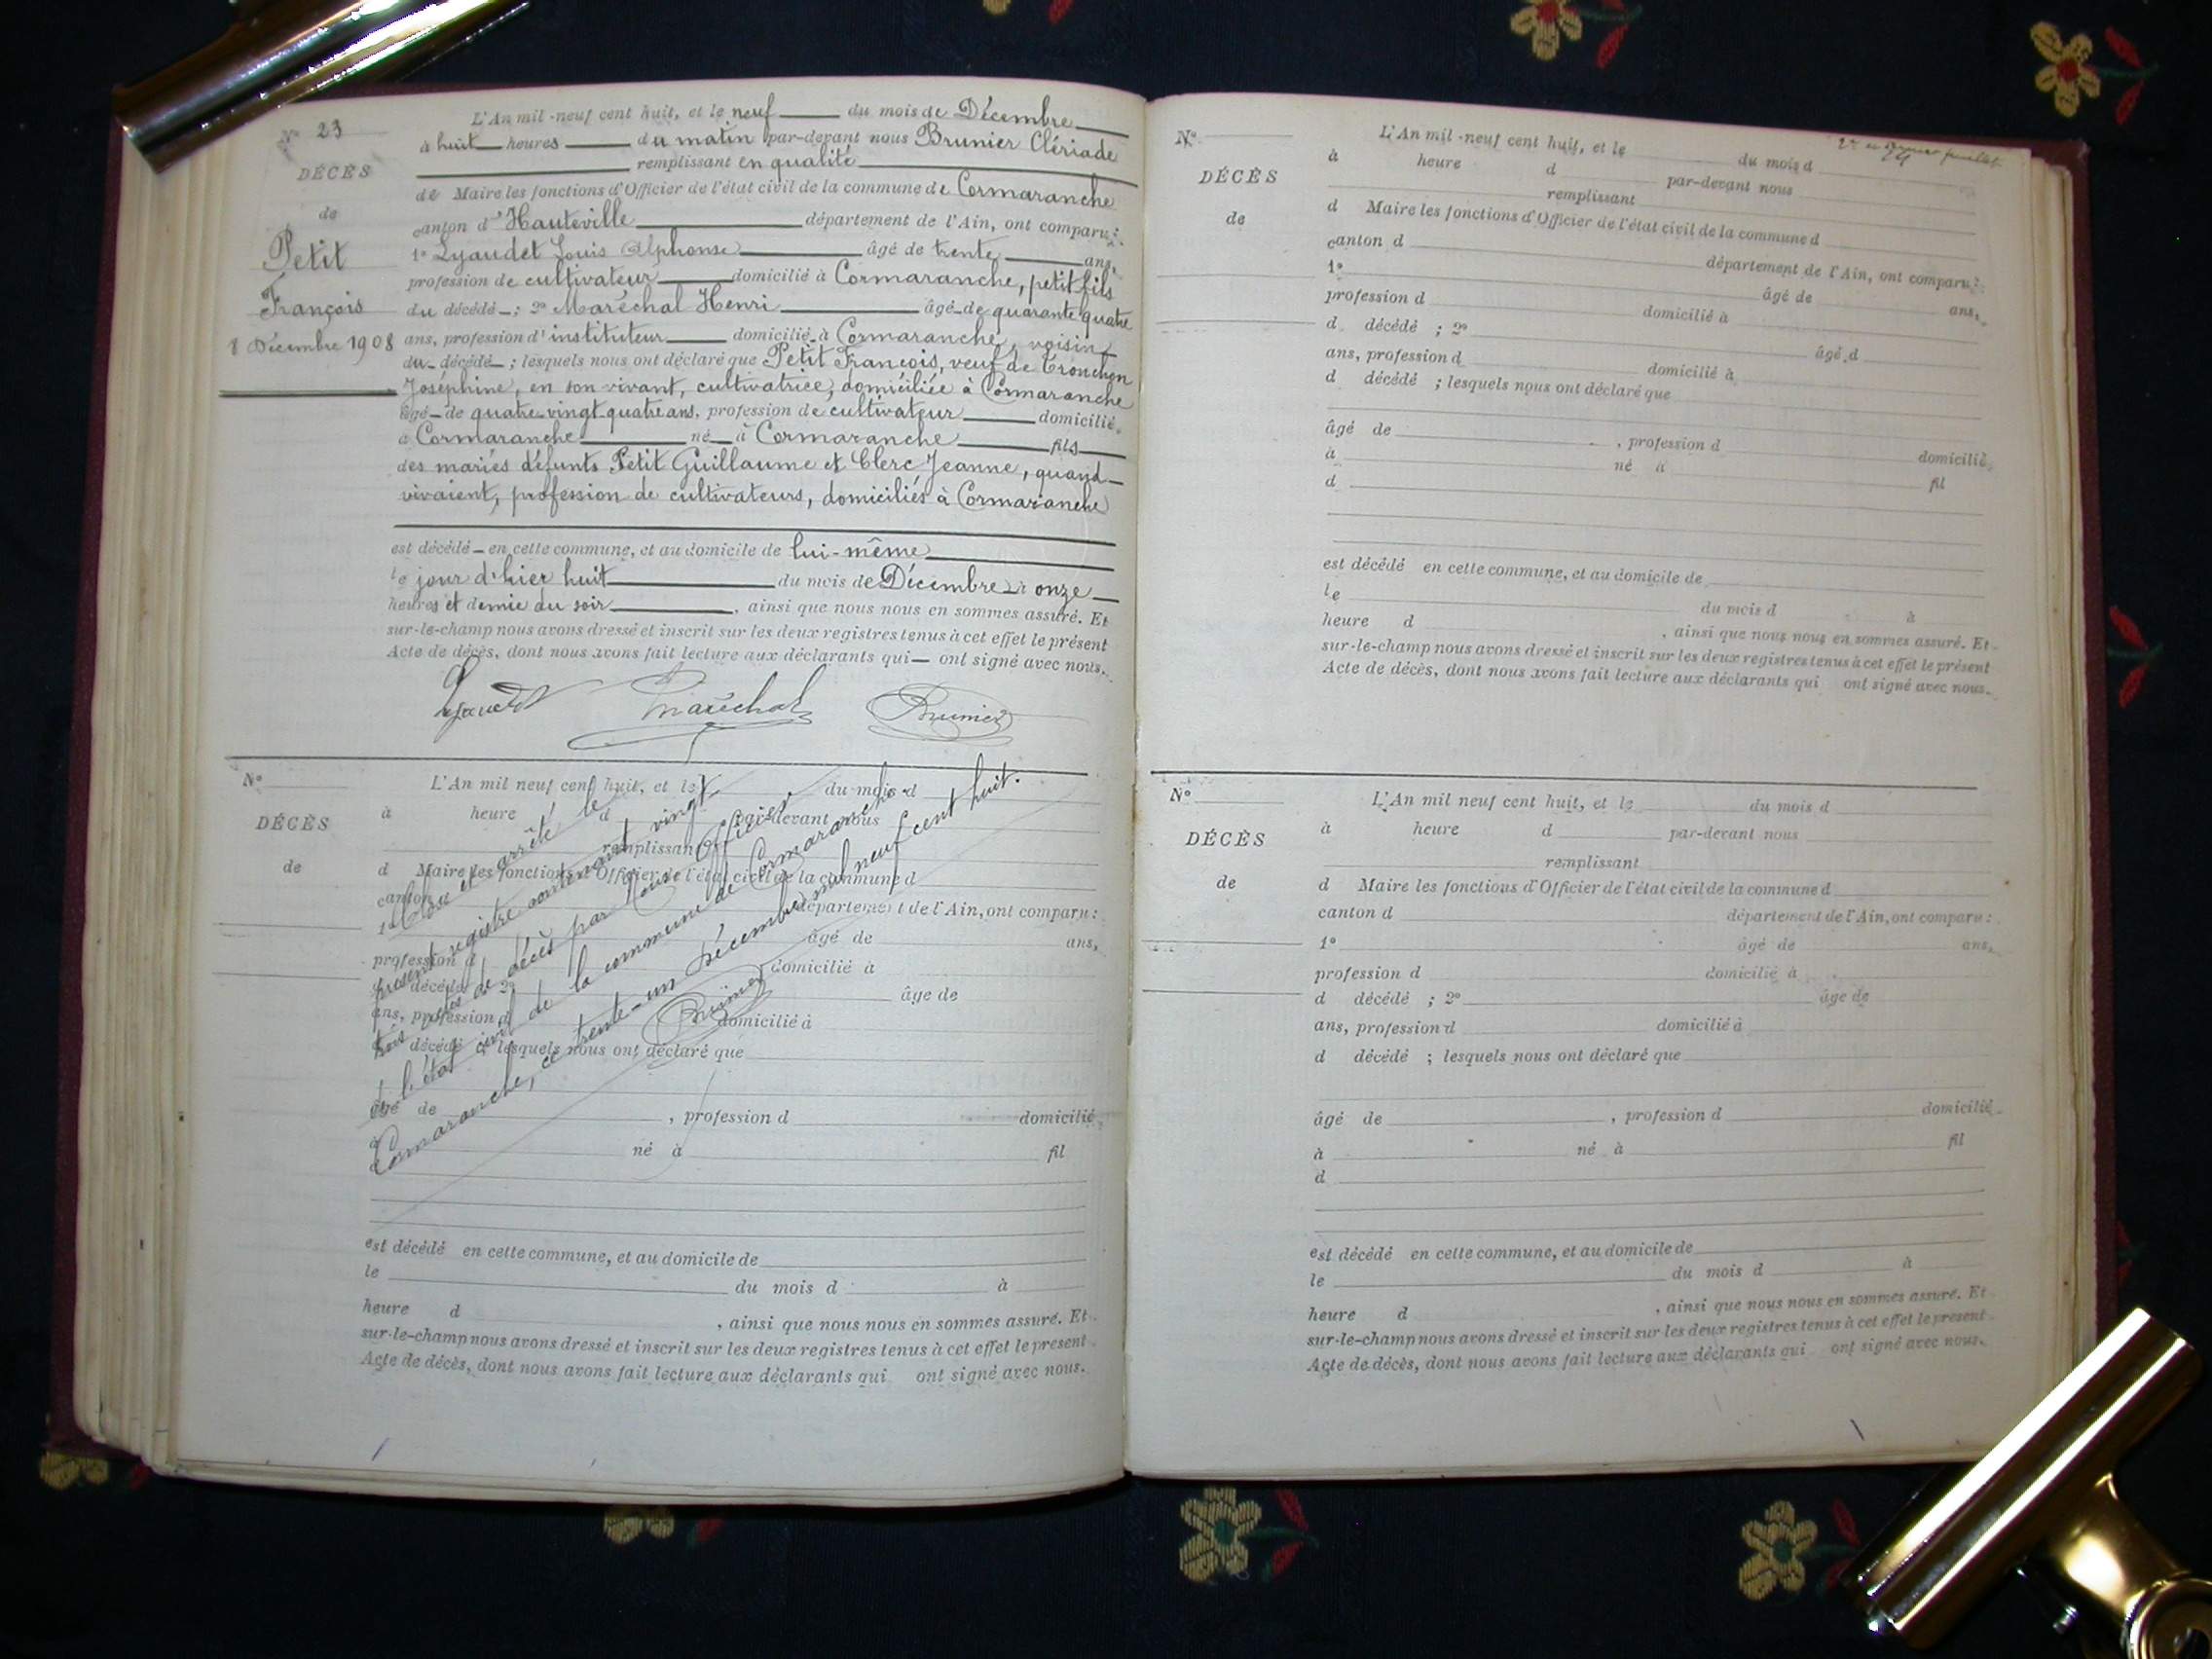 N° 23
DÉCÈS
de
Petit
François
8 Décembre 1908
L'An mil-neuf cent huit, et le neuf du mois de Décembre
à huit heures du matin par-devant nous Brunier Clériade
remplissant en qualité
de Maire les fonctions d'Officier de l'état civil de la commune de Cormaranche
canton d'Hauteville département de l'Ain, ont comparu :
1° Lyaudet Louis Alphonse âgé de trente ans,
profession de cultivateur domicilié à Cormaranche, petit fils
du décédé ; 2° Maréchal Henri âgé de quarante quatre
ans, profession d'instituteur domicilié à Cormaranche, voisin
du décédé ; lesquels nous ont déclaré que Petit François, veuf de Tronchon
Joséphine, en son vivant, cultivatrice, domiciliée à Cormaranche
âgé de quatre-vingt quatre ans, profession de cultivateur domicilié
à Cormaranche né à Cormaranche fils
des mariés défunts Petit Guillaume et Clerc Jeanne, quand
vivaient, profession de cultivateurs, domiciliés à Cormaranche
est décédé en cette commune, et au domicile de lui-même
le jour d'hier huit du mois de Décembre à onze
heures et demie du soir, ainsi que nous nous en sommes assuré. Et
sur-le-champ nous avons dressé et inscrit sur les deux registres tenus à cet effet le présent
Acte de décès, dont nous avons fait lecture aux déclarants qui ont signé avec nous.
Lyaudet Maréchal Brunier
N°
DÉCÈS
de
L'An mil neuf cent huit, et le du mois d
à heure d par-devant nous
remplissant
d Maire les fonctions d'Officier de l'état civil de la commune d
canton d département de l'Ain, ont comparu :
1° âgé de ans,
profession d domicilié à
d décédé ; 2° âge de
ans, profession d domicilié à
d décédé ; lesquels nous ont déclaré que
âgé de , profession d domicilié
à né à fil
est décédé en cette commune, et au domicile de
le du mois d à
heure d , ainsi que nous nous en sommes assuré. Et
sur-le-champ nous avons dressé et inscrit sur les deux registres tenus à cet effet le présent
Acte de décès, dont nous avons fait lecture aux déclarants qui ont signé avec nous.
Clos et arrêté le
présent registre contenant vingt-
trois actes de décès par Nous Officier
de l'état civil de la commune de Cormaranche
Cormaranche, ce trente-un Décembre mil neuf cent huit.
Brunier
24
N°
DÉCÈS
de
L'An mil-neuf cent huit, et le du mois d
à heure d par-devant nous
remplissant
d Maire les fonctions d'Officier de l'état civil de la commune d
canton d département de l'Ain, ont comparu :
1° âgé de ans,
profession d domicilié à
d décédé ; 2° âgé d
ans, profession d domicilié à
d décédé ; lesquels nous ont déclaré que
âgé de , profession d domicilié
à né à fil
d
est décédé en cette commune, et au domicile de
le du mois d à
heure d , ainsi que nous nous en sommes assuré. Et
sur-le-champ nous avons dressé et inscrit sur les deux registres tenus à cet effet le présent
Acte de décès, dont nous avons fait lecture aux déclarants qui ont signé avec nous.
N°
DÉCÈS
de
L'An mil neuf cent huit, et le du mois d
à heure d par-devant nous
remplissant
d Maire les fonctions d'Officier de l'état civil de la commune d
canton d département de l'Ain, ont comparu :
1° âgé de ans,
profession d domicilié à
d décédé ; 2° âge de
ans, profession d domicilié à
d décédé ; lesquels nous ont déclaré que
âgé de , profession d domicilié
à né à fil
d
est décédé en cette commune, et au domicile de
le du mois d à
heure d , ainsi que nous nous en sommes assuré. Et
sur-le-champ nous avons dressé et inscrit sur les deux registres tenus à cet effet le présent
Acte de décès, dont nous avons fait lecture aux déclarants qui ont signé avec nous.